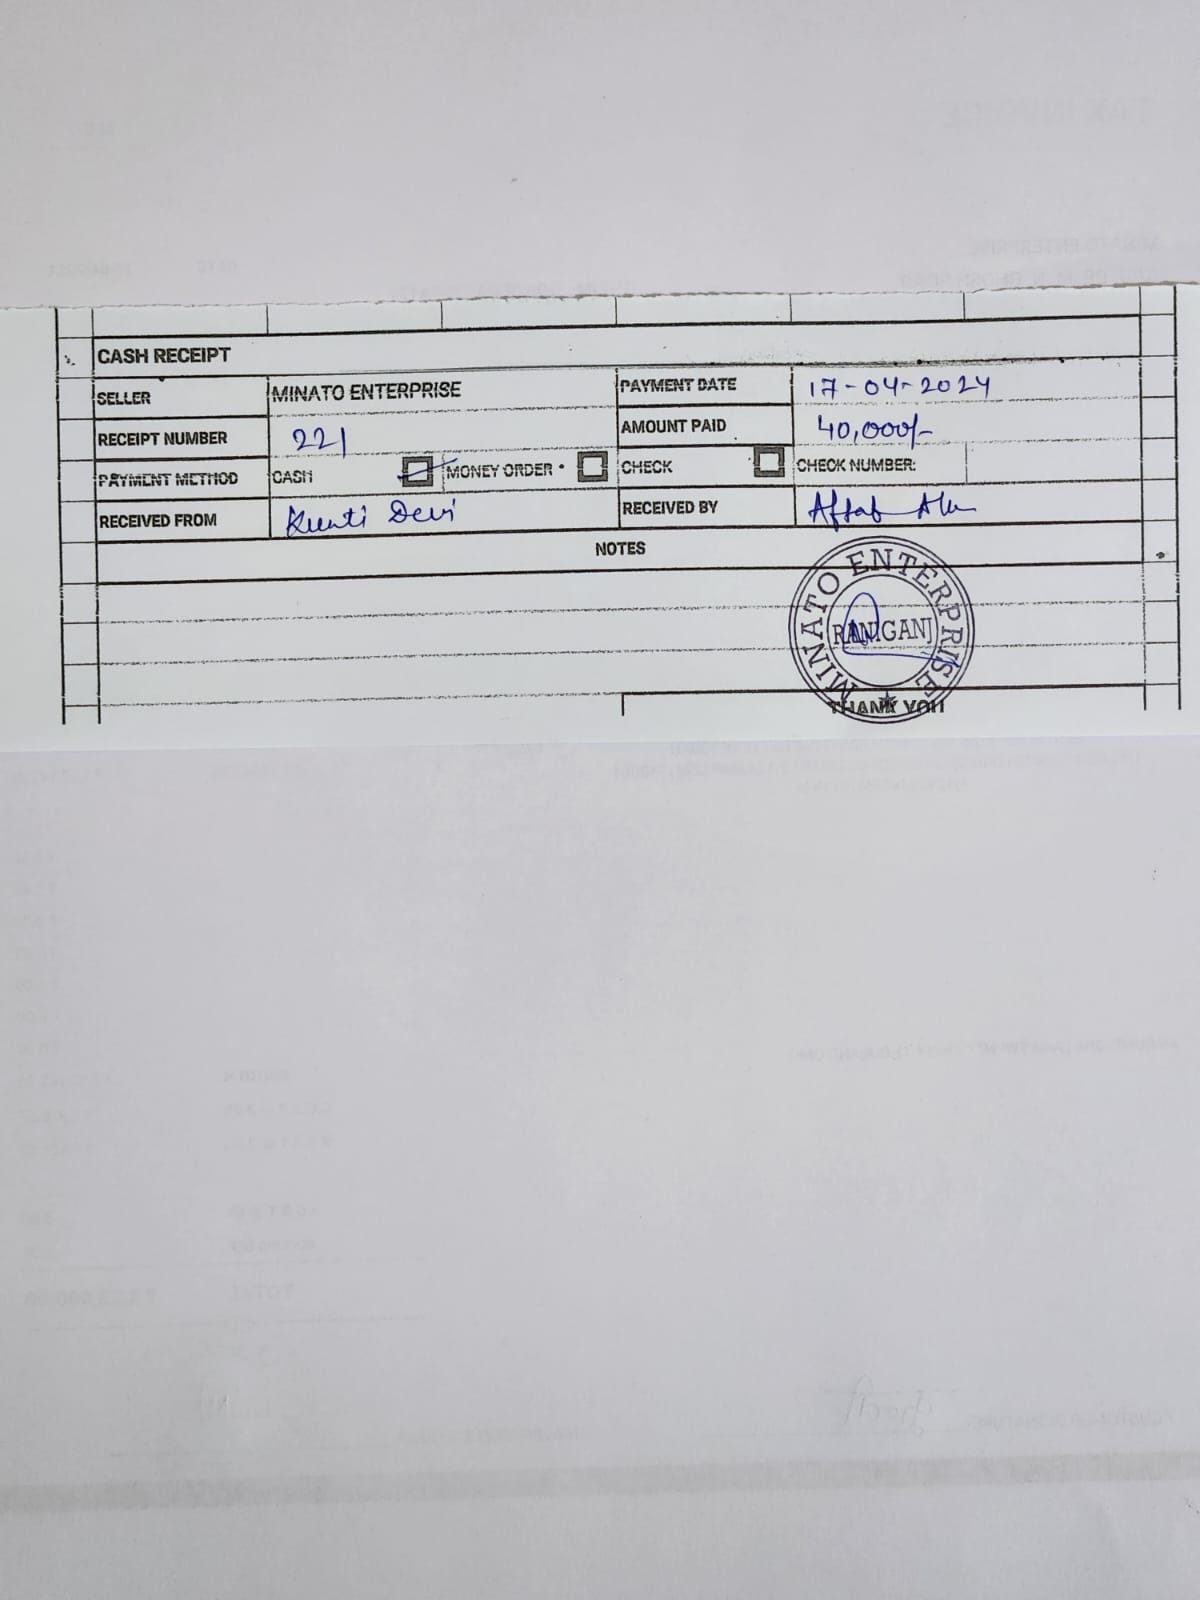 CASH RECEIPT
SELLER MINATO ENTERPRISE PAYMENT DATE 17-04-2024
RECEIPT NUMBER 221 AMOUNT PAID 40,000/-
PAYMENT METHOD CASH MONEY ORDER CHECK CHECK NUMBER:
RECEIVED FROM Kunti Devi RECEIVED BY Aftab
NOTES
MINATO ENTERPRISE
RANIGANJ
THANK YOU